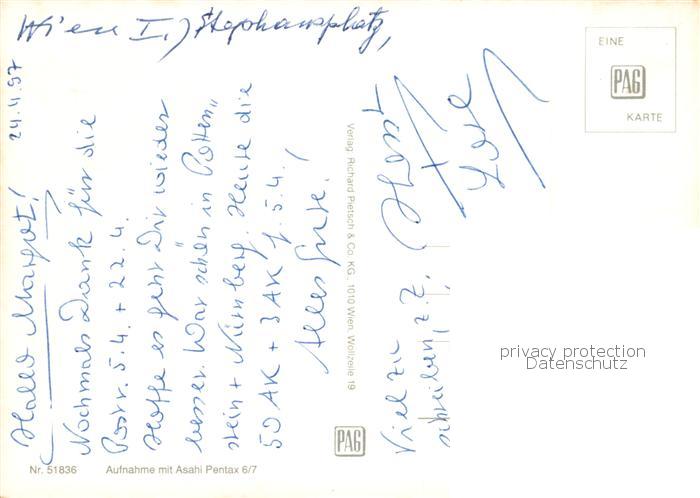 Wien I.) Stephansplatz,
24.4.97
Hallo Margot!
Nochmals Dank für die
Postr. 5.4. + 22.4.
Hoffe es geht Dir wieder
besser. War schön in Potten„
stein + Nürnberg. Heute die
50 AK + 3 AK f. 5.4.!
Alles Gute!
Verlag Richard Pietsch & Co. KG., 1010 Wien, Wollzeile 19
PAG
Viel zu
schreiben, z. Z.
EINE
PAG
KARTE
privacy protection
Datenschutz
Nr. 51836 Aufnahme mit Asahi Pentax 6/7